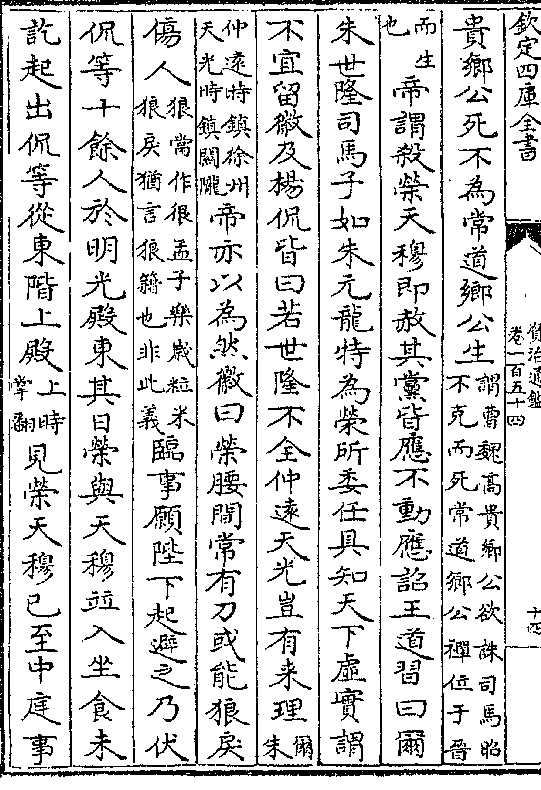 欽定四庫全書
資治通鑑
卷一百五十四
十四
貴鄉公死不為常道鄉公生謂曹魏髙貴鄉公欲誅司馬昭不克而死常道鄉公禪位于晉
而生也帝謂殺榮天穆即赦其黨皆應不動應詔王道習曰爾
朱世隆司馬子如朱元龍特為榮所委任具知天下虛實謂
不宜留徽及楊侃皆曰若世隆不全仲遠天光豈有来理爾朱
仲遠時鎮徐州天光時鎮關隴帝亦以為然徽曰榮腰間常有刀或能狼戾
傷人狼當作很孟子樂歲粒米狼戾猶言狼籍也非此義臨事願陛下起避之乃伏
侃等十餘人於明光殿東其日榮與天穆並入坐食未
訖起出侃等從東階上殿上時掌翻見榮天穆已至中庭事